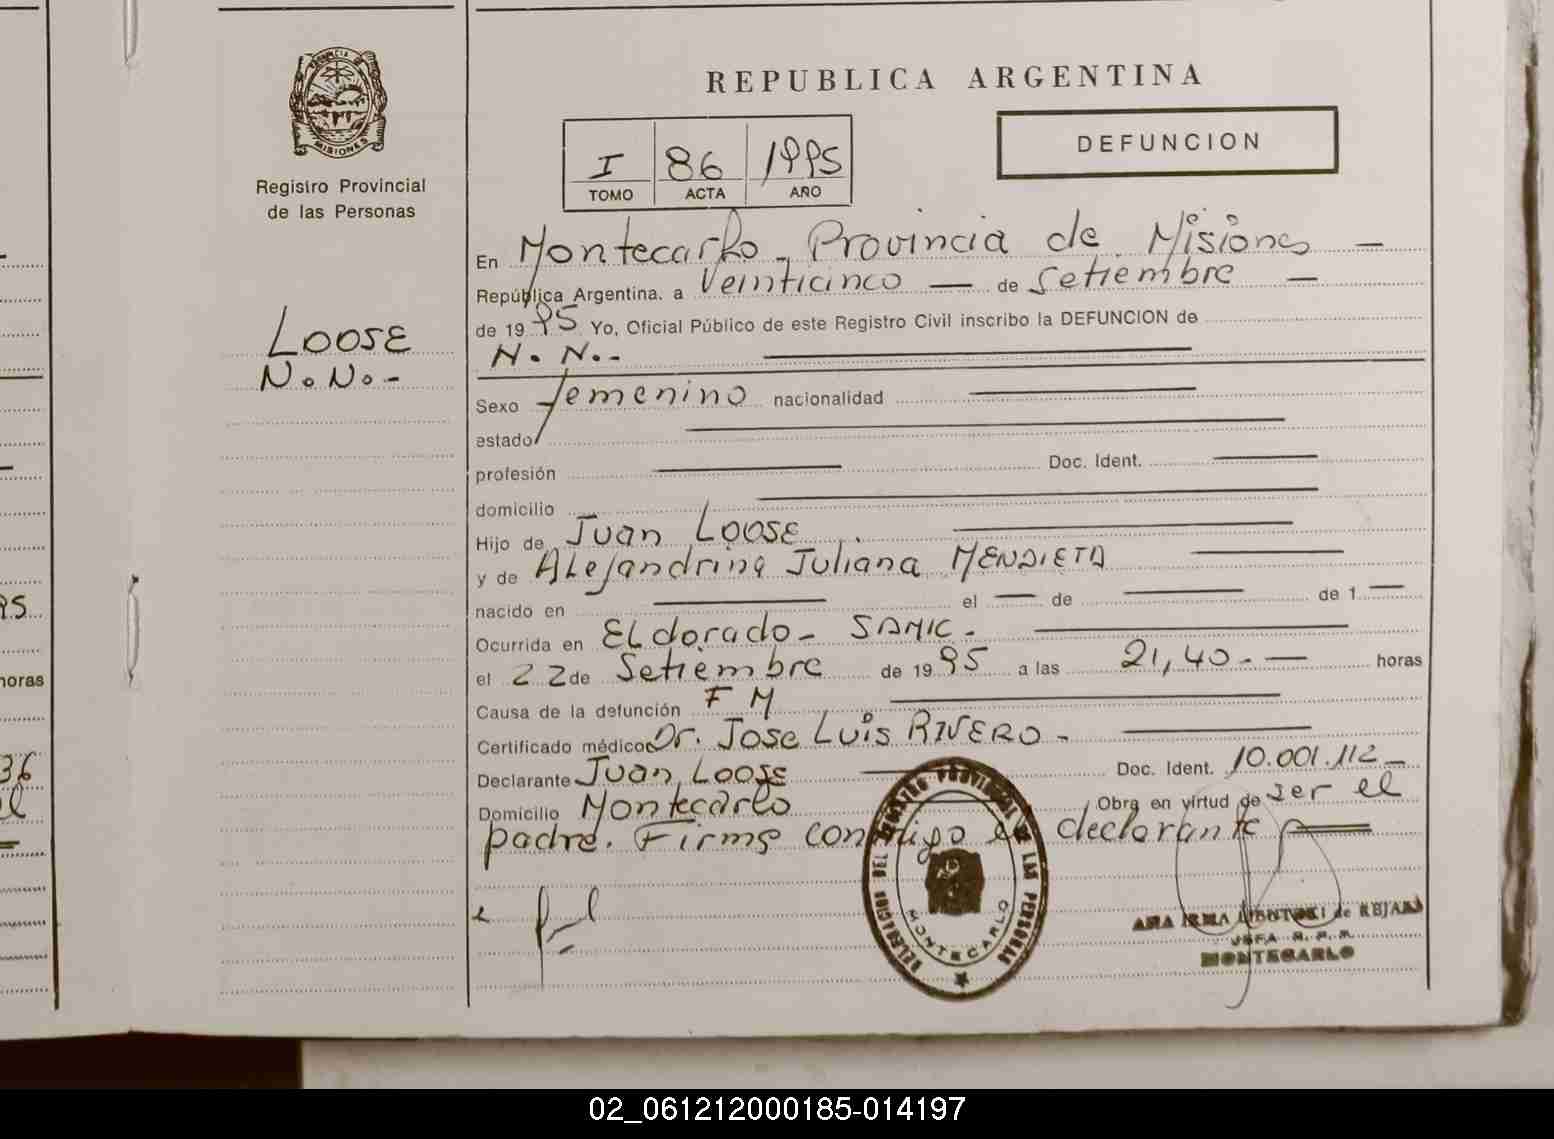 REPUBLICA ARGENTINA
DEFUNCION
PROVINCIA DE
MISIONES
Registro Provincial
de las Personas
I 86 1995
TOMO ACTA AÑO
LOOSE
N.N.-
En Montecarlo - Provincia de Misiones —
República Argentina. a Veinticinco — de Setiembre —
de 1995 Yo, Oficial Público de este Registro Civil inscribo la DEFUNCION de
N. N.-
Sexo femenino nacionalidad
estado
profesión Doc. Ident.
domicilio
Hijo de Juan LOOSE
y de Alejandrina Juliana MENDIETA
nacido en el — de de 1 —
Ocurrida en Eldorado - SAMIC.
el 22 de Setiembre de 1995 a las 21,40.- — horas
Causa de la defunción F M
Certificado médico Dr. Jose Luis RIVERO -
Declarante Juan LOOSE Doc. Ident. 10.001.112 -
Domicilio Montecarlo Obra en virtud de ser el
padre. Firma conmigo el declarante
DELEGACION DEL REGISTRO PROVINCIAL DE LAS PERSONAS
MONTECARLO
ANA IRMA de REJALA
JEFA R. P. P.
MONTECARLO
95
horas
36
el
02_061212000185-014197